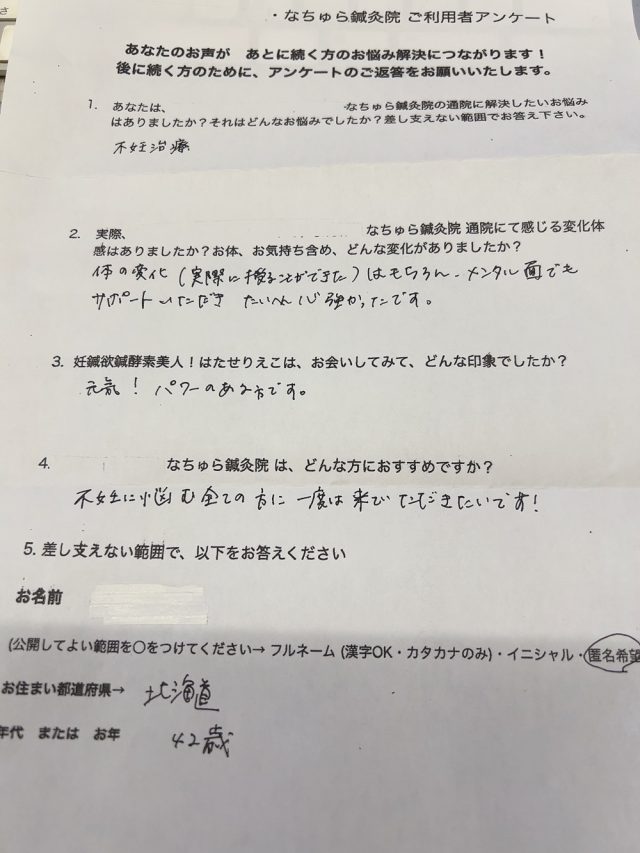 ・なちゅら鍼灸院 ご利用者アンケート
あなたのお声が　あとに続く方のお悩み解決につながります！
後に続く方のために、アンケートのご返答をお願いいたします。
1. あなたは、 なちゅら鍼灸院の通院に解決したいお悩み
はありましたか？それはどんなお悩みでしたか？差し支えない範囲でお答え下さい。
不妊治療
2. 実際、 なちゅら鍼灸院 通院にて感じる変化体
感はありましたか？お体、お気持ち含め、どんな変化がありましたか？
体の変化（実際に授ることができた）はもちろん、メンタル面でも
サポートいただき たいへん心強かったです。
3. 妊鍼欲鍼酵素美人！はたせりえこは、お会いしてみて、どんな印象でしたか？
元気！ パワーのある方です。
4. なちゅら鍼灸院 は、どんな方におすすめですか？
不妊に悩む全ての方に一度は来ていただきたいです！
5. 差し支えない範囲で、以下をお答えください
お名前
(公開してよい範囲を〇をつけてください→ フルネーム (漢字OK・カタカナのみ)・イニシャル・匿名希望
お住まい都道府県→ 北海道
年代　または　お年 42歳